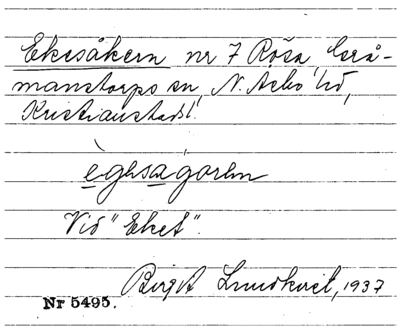 Ekesåkern nr 7 Röşa, Grå-
manstorps sn, N. Åsbo hd,
Kristianstads l.
èghsagorln
Vid "Eket".
Birgit Lundkvist, 1937
Nr 5495.